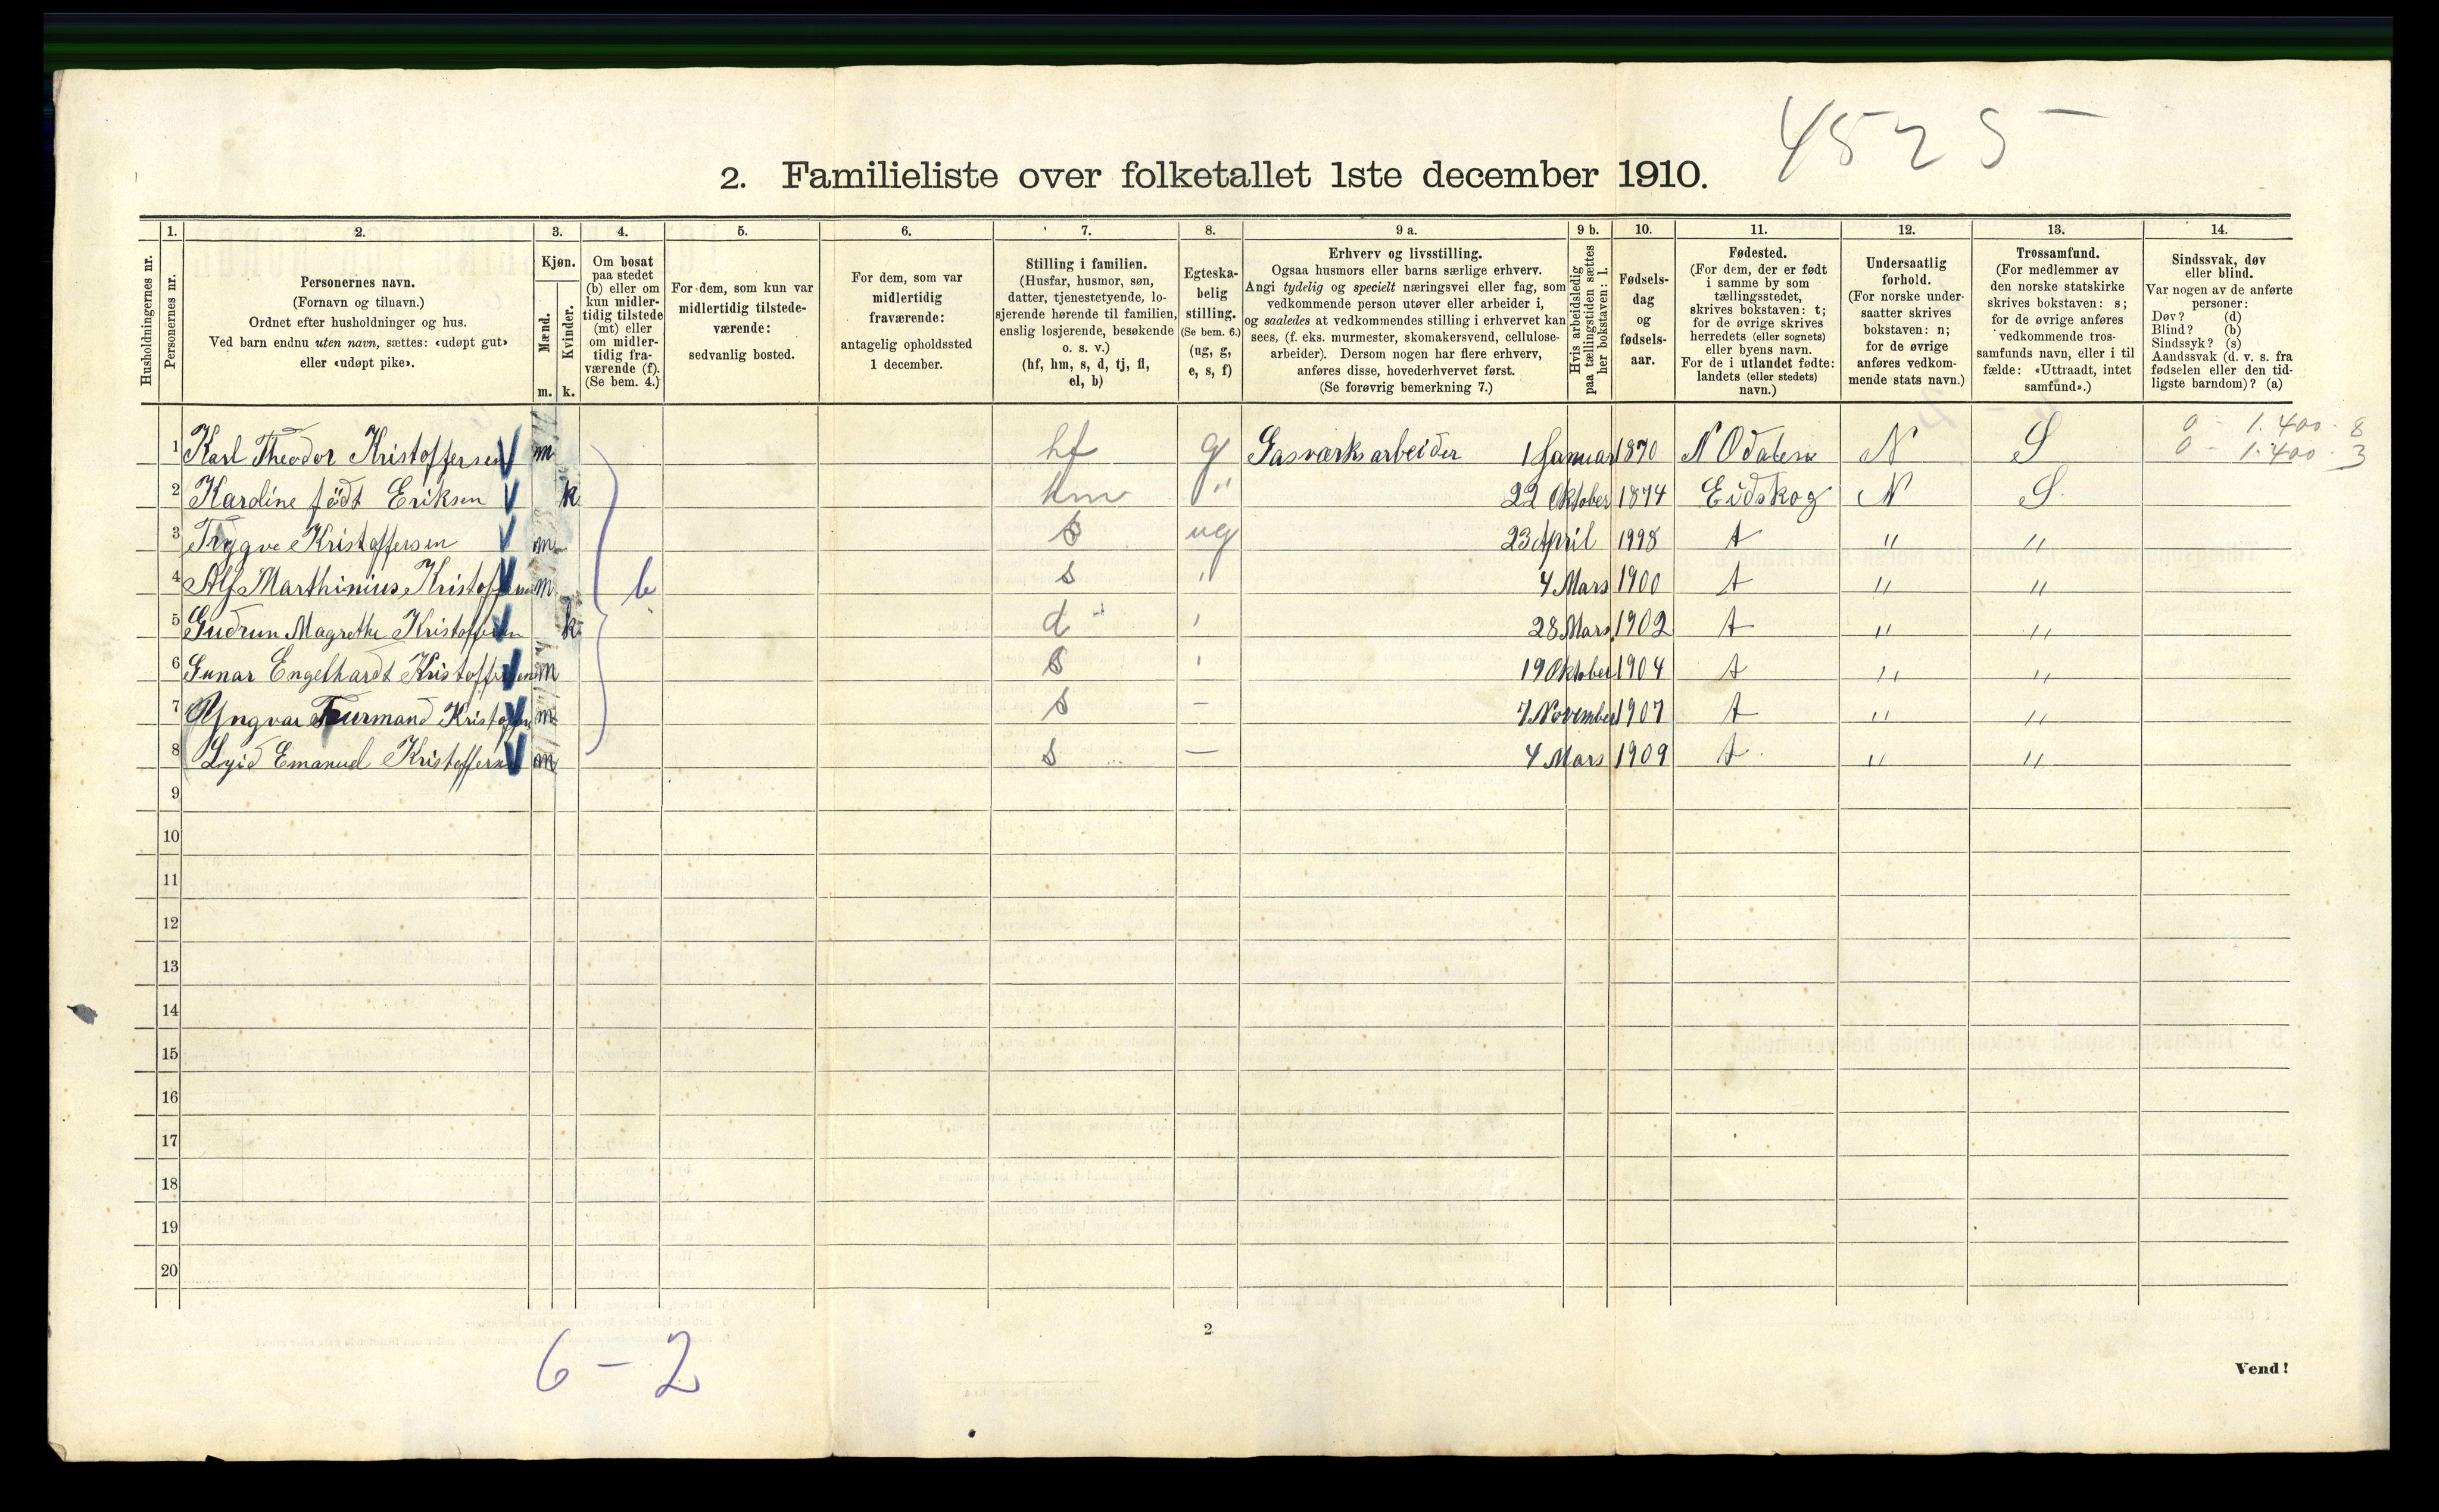 4525 -
2. Familieliste over folketallet 1ste december 1910.
Husholdningernes nr.
1. Personernes nr.
2. Personernes navn.
(Fornavn og tilnavn.)
Ordnet efter husholdninger og hus.
Ved barn endnu uten navn, sættes: «udøpt gut»
eller «udøpt pike».
3. Kjøn.
Mænd. m.
Kvinder. k.
4. Om bosat
paa stedet
(b) eller om
kun midler-
tidig tilstede
(mt) eller
om midler-
tidig fra-
værende (f).
(Se bem. 4.)
5. For dem, som kun var
midlertidig tilstede-
værende:
sedvanlig bosted.
6. For dem, som var
midlertidig
fraværende:
antagelig opholdssted
1 december.
7. Stilling i familien.
(Husfar, husmor, søn,
datter, tjenestetyende, lo-
sjerende hørende til familien,
enslig losjerende, besøkende
o. s. v.)
(hf, hm, s, d, tj, fl,
el, b)
8. Egteska-
belig
stilling.
(Se bem. 6.)
(ug, g,
e, s, f)
9 a. Erhverv og livsstilling.
Ogsaa husmors eller barns særlige erhverv.
Angi tydelig og specielt næringsvei eller fag, som
vedkommende person utøver eller arbeider i,
og saaledes at vedkommendes stilling i erhvervet kan
sees, (f. eks. murmester, skomakersvend, cellulose-
arbeider). Dersom nogen har flere erhverv,
anføres disse, hovederhvervet først.
(Se forøvrig bemerkning 7.)
9 b. Hvis arbeidsledig
paa tællingstiden sættes
her bokstaven: l.
10. Fødsels-
dag
og
fødsels-
aar.
11. Fødested.
(For dem, der er født
i samme by som
tællingsstedet,
skrives bokstaven: t;
for de øvrige skrives
herredets (eller sognets)
eller byens navn.
For de i utlandet fødte:
landets (eller stedets)
navn.)
12. Undersaatlig
forhold.
(For norske under-
saatter skrives
bokstaven: n;
for de øvrige
anføres vedkom-
mende stats navn.)
13. Trossamfund.
(For medlemmer av
den norske statskirke
skrives bokstaven: s;
for de øvrige anføres
vedkommende tros-
samfunds navn, eller i til
fælde: «Uttraadt, intet
samfund».)
14. Sindssvak, døv
eller blind.
Var nogen av de anførte
personer:
Døv? (d)
Blind? (b)
Sindssyk? (s)
Aandssvak (d. v. s. fra
fødselen eller den tid-
ligste barndom)? (a)
0 - 1.400 - 8
0 - 1.400 - 3
1 Karl Theodor Kristoffersen m hf g Gasværksarbeider 1 Januar 1870 N Odalen N S
2 Karoline født Eriksen k hm " 22 Oktober 1874 Eidskog N S
3 Trygve Kristoffersen m s ug 23 April 1998 t " "
4 Alf Marthinius Kristoffersen m b s " 4 Mars 1900 t " "
5 Gudrun Magrethe Kristoffersen k d ' 28 Mars 1902 t " "
6 Gunar Engelhardt Kristoffersen m s ' 19 Oktober 1904 t " "
7 Yngvar Kristoffersen m s - 7 November 1907 t " "
8 Emanuel Kristoffersen m s - 4 Mars 1909 t " "
9
10
11
12
13
14
15
16
17
18
19
20
2
6 - 2
Vend!